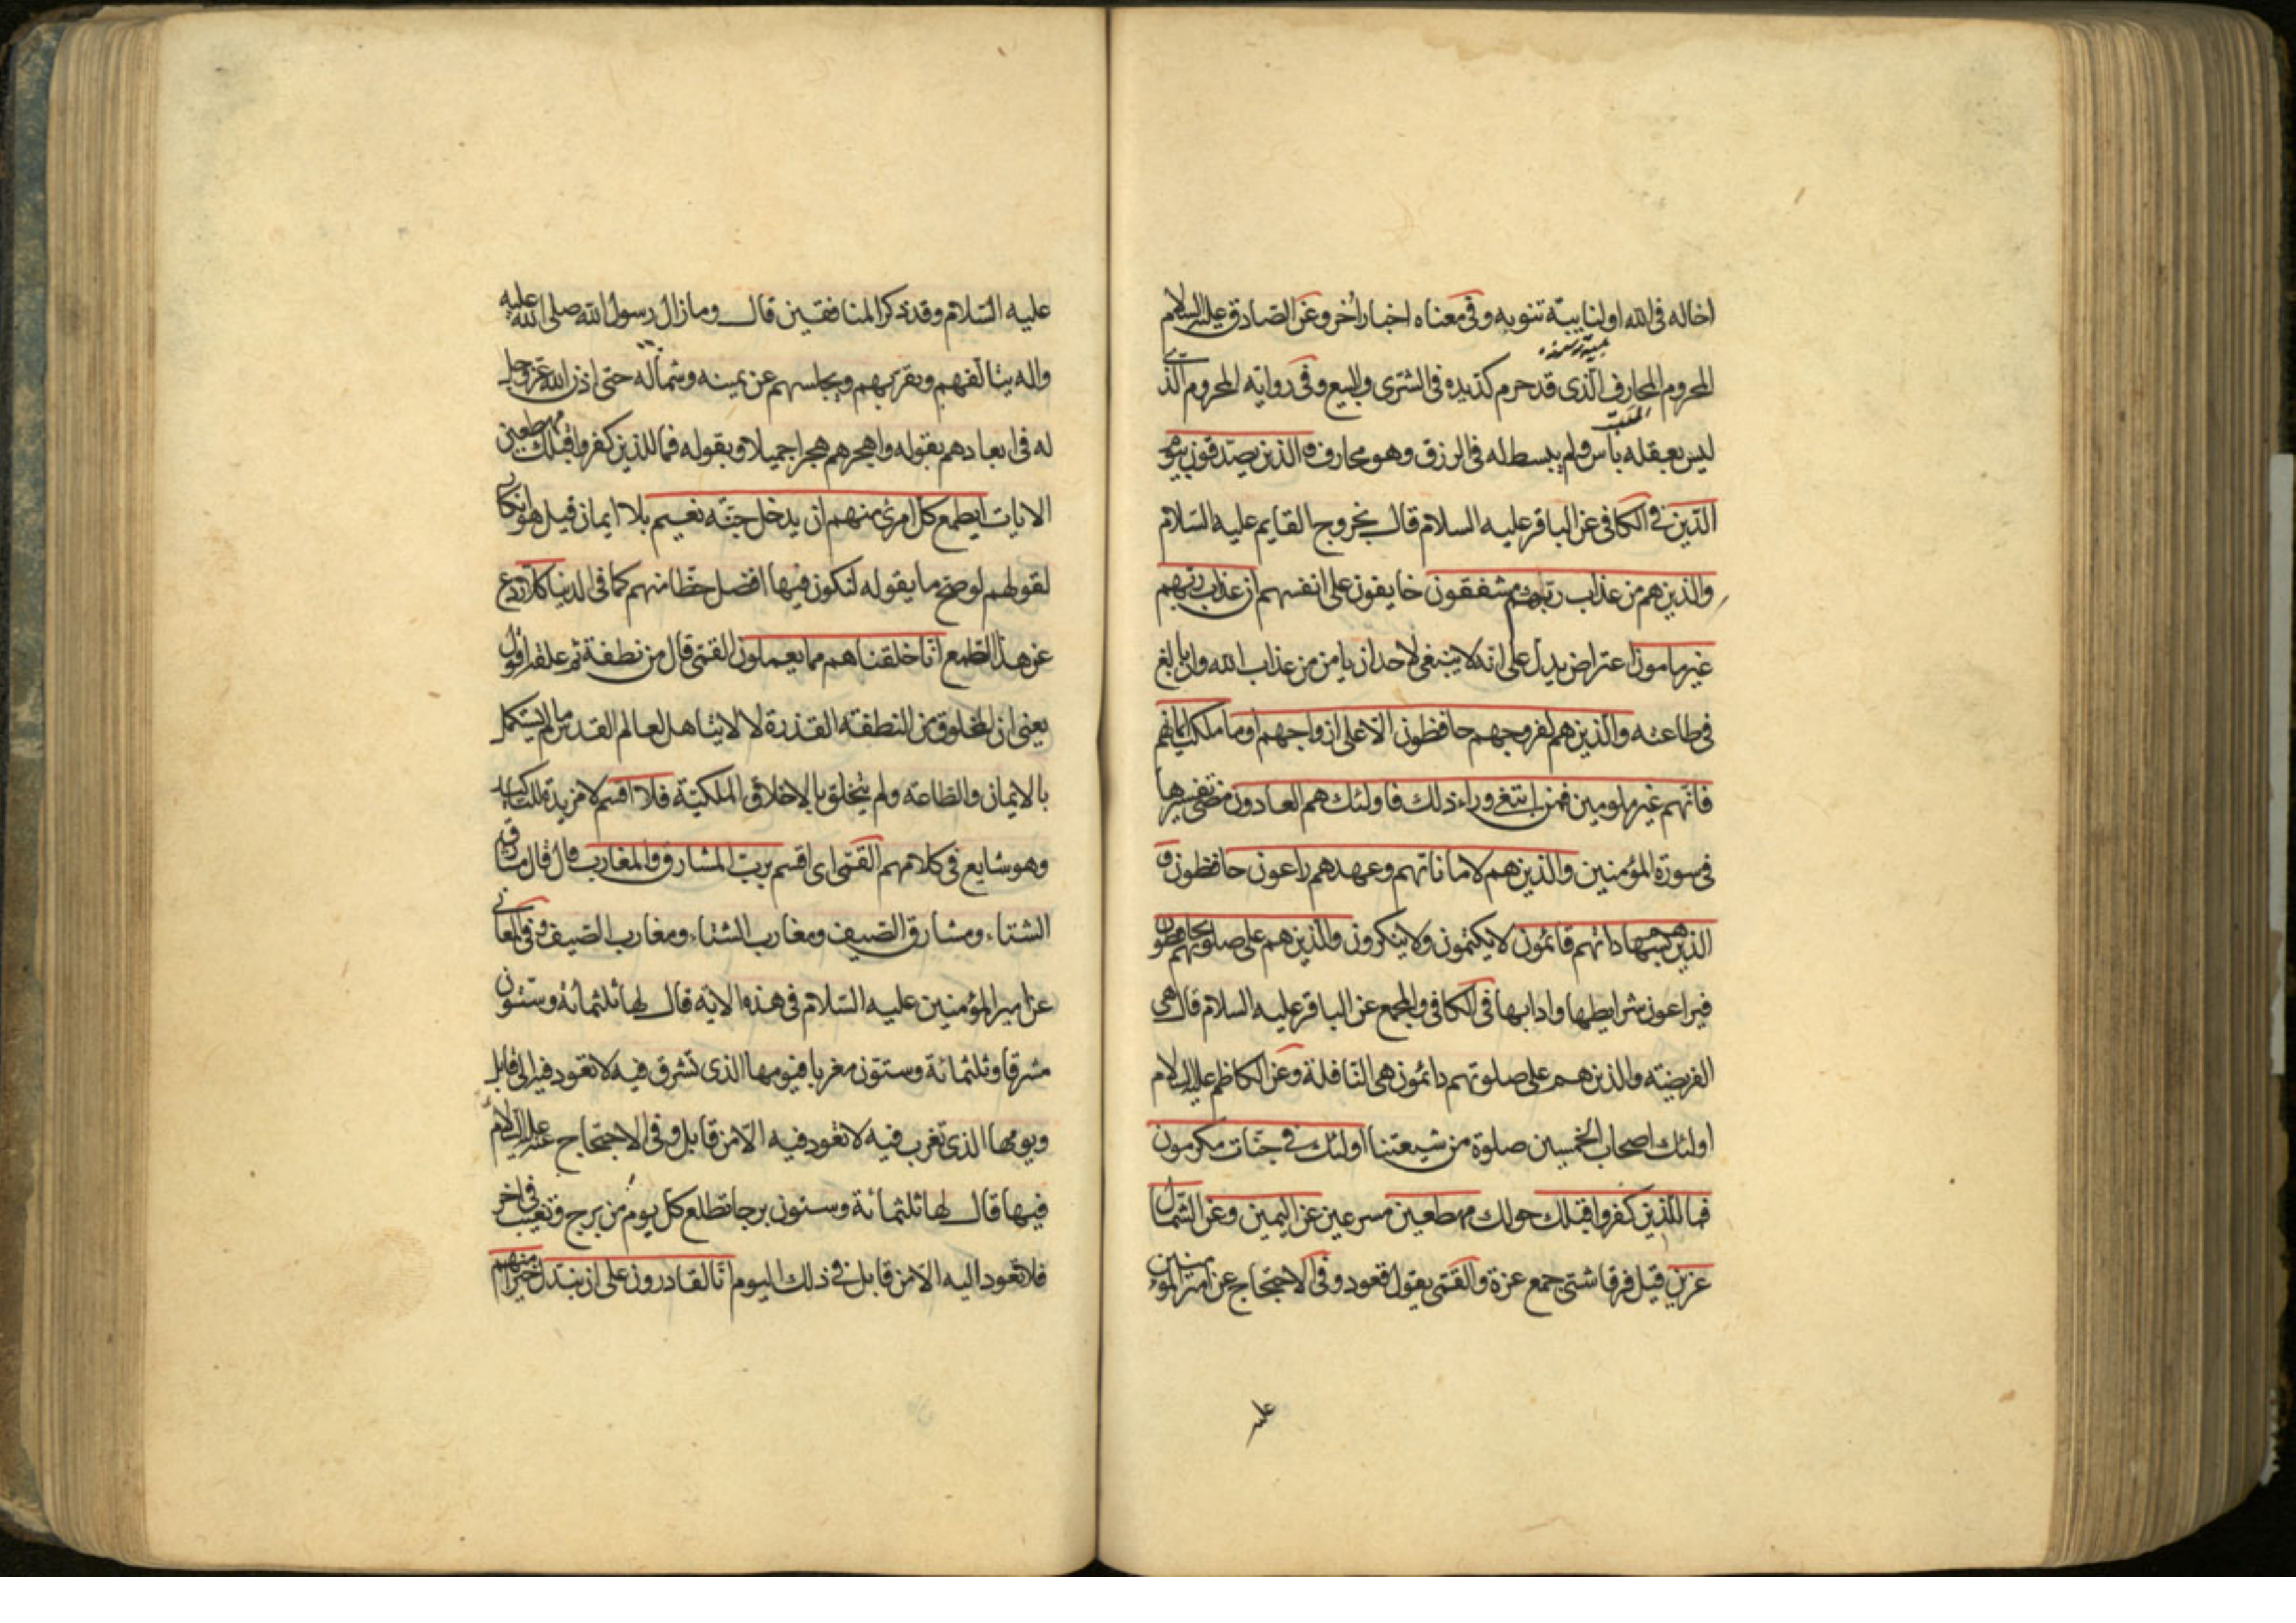 اخاله فى الله او لنايبة تنوبه وفى معناه اخبار أخر وعن الصادق عليه السلام
المحروم المحارف الذى قد حرم كد يده فى الشرى والبيع وفى رواية المحروم الذى
ليس بعقله بأس ولم يبسط له فى الرزق وهو محارف والذين يصدقون بيوم
الدين فى الكافى عن الباقر عليه السلام قال بخروج القايم عليه السلام
والذين هم من عذاب ربهم مشفقون خايفون على انفسهم ان عذاب ربهم
غير مامون اعتراض يدل على انه لا ينبغى لاحد ان يامن من عذاب الله وان بالغ
فى طاعته والذين هم لفروجهم حافظون الا على ازواجهم او ما ملكت ايمانهم
فانهم غير ملومين فمن ابتغى وراء ذلك فاولئك هم العادون مضى تفسيرها
فى سورة المؤمنين والذين هم لاماناتهم وعهدهم راعون حافظون و
الذين هم بشهاداتهم قائمون لا يكتمون ولا ينكرون والذين هم على صلوتهم يحافظون
فيراعون شرايطها وادابها فى الكافى والمجمع عن الباقر عليه السلام قال هى
الفريضة والذين هم على صلوتهم دائمون هى النافلة وعن الكاظم عليه السلام
اولئك اصحاب الخمسين صلوة من شيعتنا اولئك فى جنات مكرمون
فما للذين كفروا قبلك حولك مهطعين مسرعين عن اليمين وعن الشمال
عزين قيل فرقا شتى جمع عزة والقمى يقول قعود وفى الاحتجاج عن امير المؤمنين
عليه
عليه السلام وقد ذكر المنافقين قال وما زال رسول الله صلى الله عليه
واله يتالفهم ويقربهم ويجلسهم عن يمينه وشماله حتى اذن الله عز وجل
له فى ابعادهم بقوله واهجرهم هجرا جميلا وبقوله فما للذين كفروا قبلك مهطعين
الايات ايطمع كل امرئ منهم ان يدخل جنة نعيم بلا ايمان قيل هو انكار
لقولهم لو صح ما يقوله لنكون فيها افضل حظا منهم كما فى الدنيا كلا ردع
عن هذا الطمع انا خلقناهم مما يعملون القمى قال من نطفة ثم علقة اقول
يعنى ان المخلوق من النطفة القذرة لا لا يتاهل لعالم القدس ما لم يستكمل
بالايمان والطاعة ولم يتخلق بالاخلاق الملكية فلا اقسم لا مزيدة للتاكيد
وهو شايع فى كلامهم القمى اى اقسم برب المشارق والمغارب قال قال مشارق
الشتاء ومشارق الصيف ومغارب الشتاء ومغارب الصيف وفى المعانى
عن امير المؤمنين عليه السلام فى هذه الاية قال لها ثلثمائة وستون
مشرقا وثلثمائة وستون مغربا فيومها الذى تشرق فيه لا تعود فيه الى قابل
ويومها الذى تغرب فيه لا تعود فيه الا من قابل وفى الاحتجاج عنه عليه السلام
فيها قال لها ثلثمائة وستون برجا تطلع كل يوم من برج وتغيب فى اخر
فلا تعود اليه الا من قابل فى ذلك اليوم انا لقادرون على ان نبدل خيرا منهم